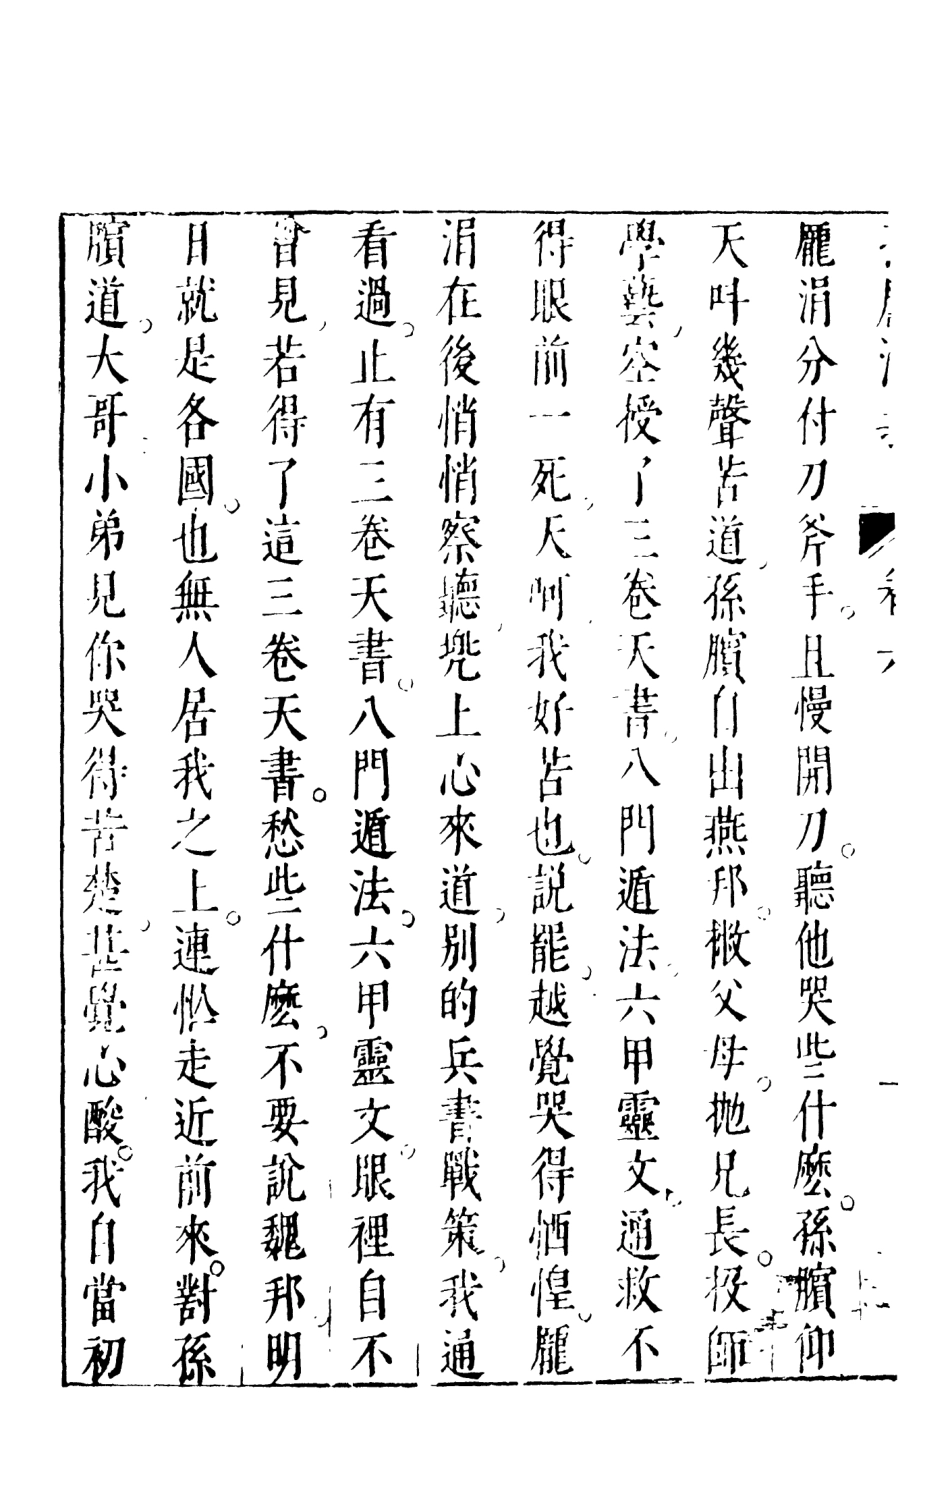 龎涓分付刀斧手。且慢開刀。聽他哭些什麽。孫臏仰
天呌幾聲苦道、孫臏自出燕邦。撇父母。抛兄長。投師
學藝、空授了三卷天書、八門遁法、六甲靈文、通救不
得眼前一死、天呵、我好苦也。說罷、越覺哭得恓惶。龎
涓在後悄悄察聽、兠上心來道、别的兵書戰策、我通
看過。止有三卷天書。八門遁法。六甲靈文、眼裡自不
曾見、若得了這三卷天書。愁些什麽、不要説魏邦、明
日就是各國。也無人居我之上。連忙走近前來。對孫
臏道。大哥、小弟見你哭得苦楚、甚覺心酸。我自當初